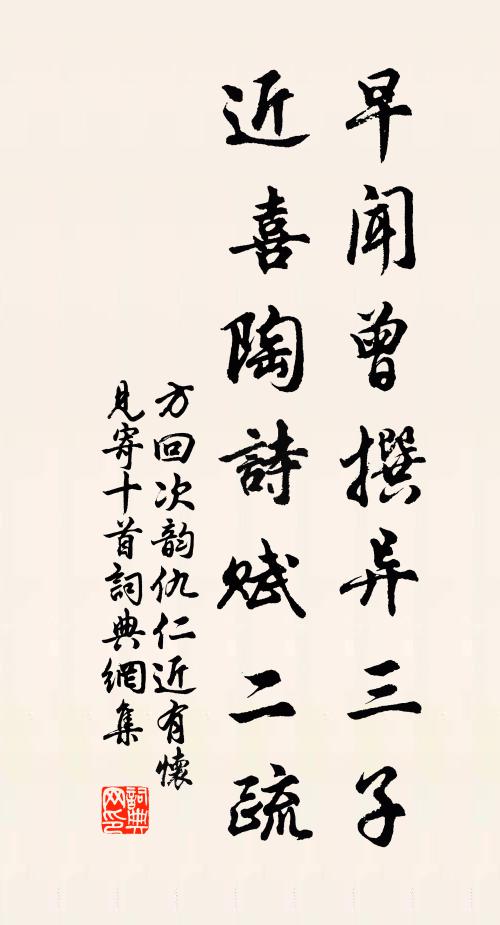 早聞曾撰异三子
近喜陶詩賦二疏
方回次韵仇仁近有懷
見寄十首詞典網集
詞典網印